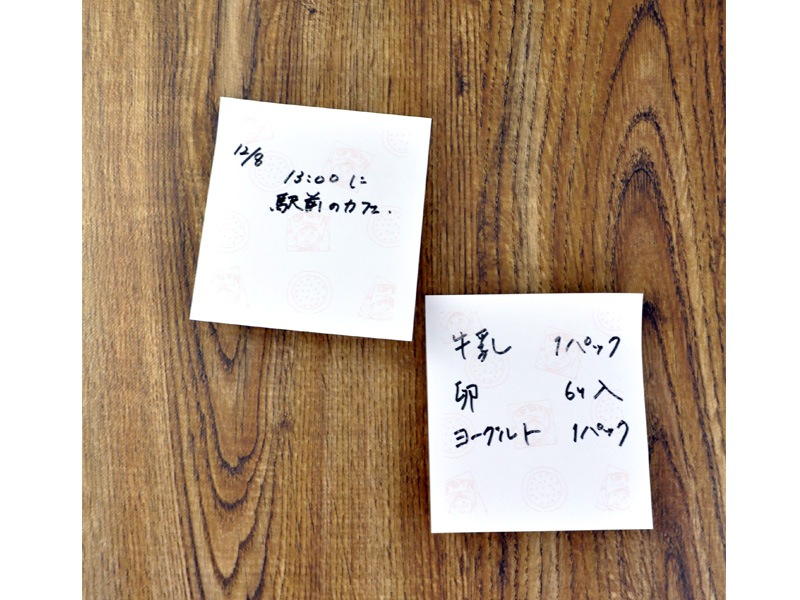 12/8
13:00に
駅前のカフェ.
牛乳 1パック
卵 6ヶ入
ヨーグルト 1パック